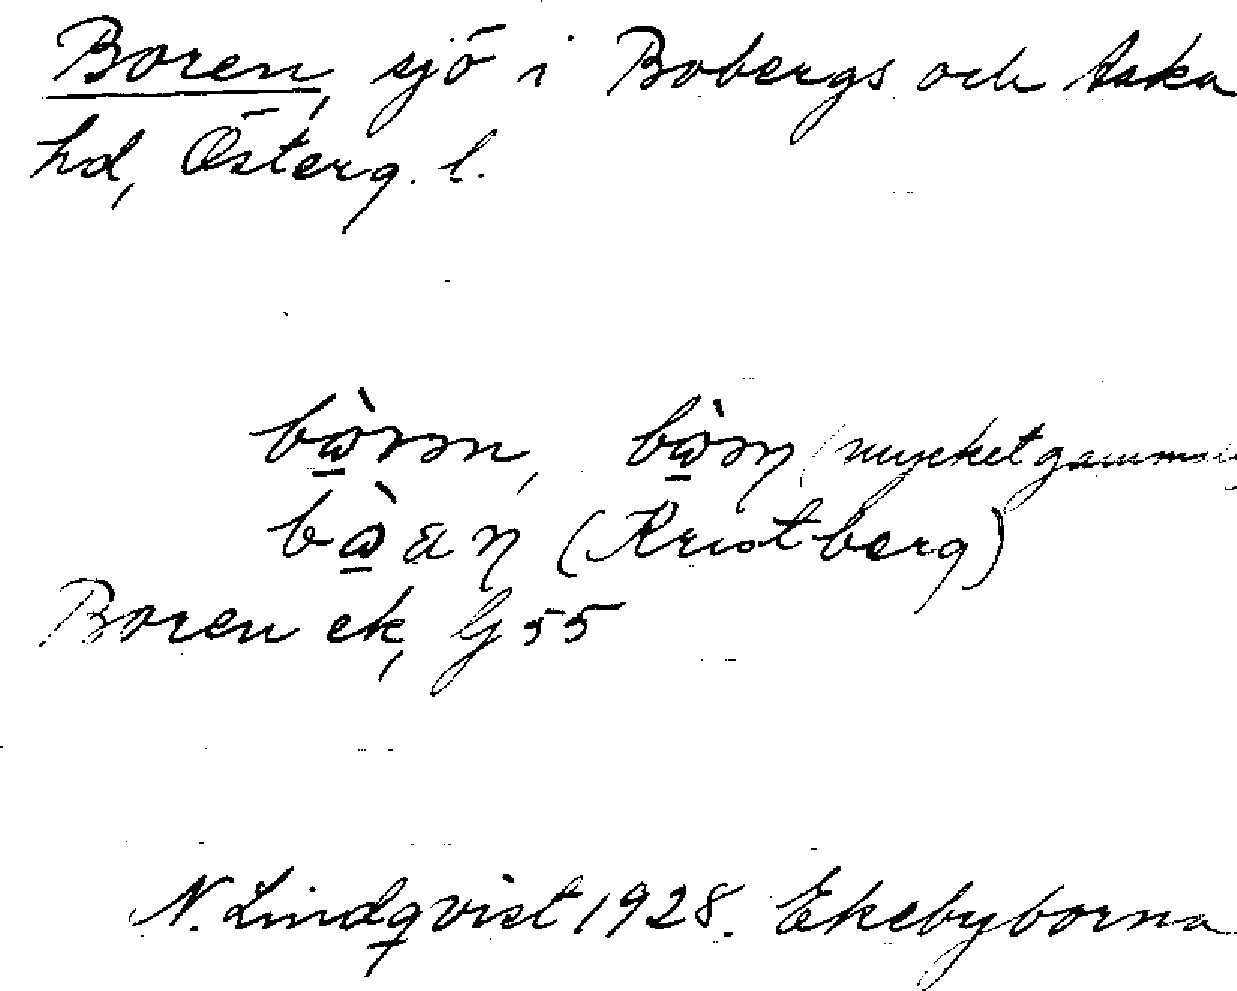 Boren, sjö i Bobergs och Aska
hd, Österg. l.
(mycket
(Kristberg)
Boren ek, G 55
N. Lindqvist 1928. Ekebyborna